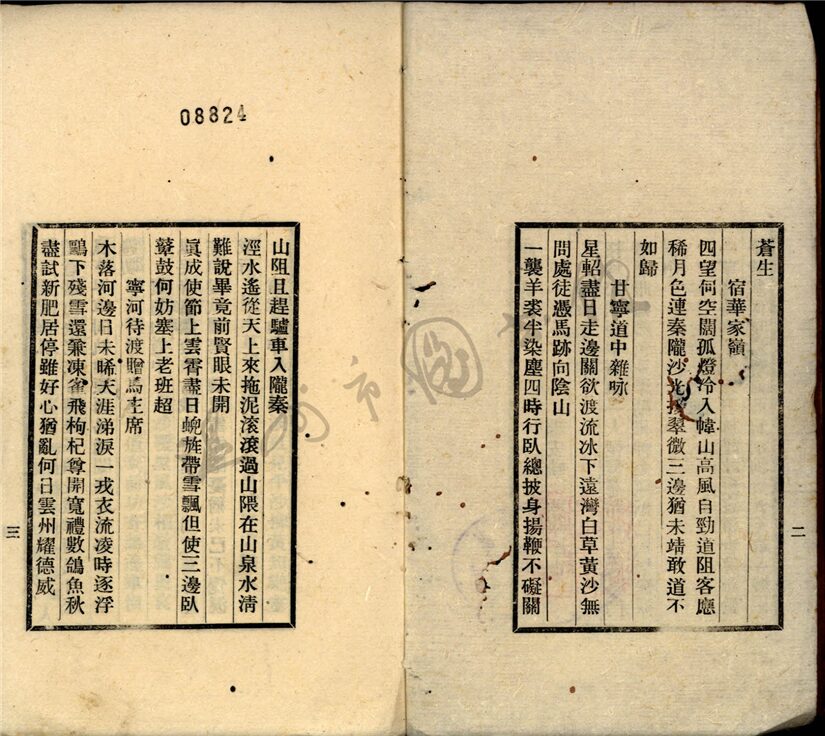 蒼生
宿華家嶺
四望何空闊孤燈冷入幃山高風自勁道阻客應
稀月色連秦隴沙光翠微三邊猶未靖敢道不
如歸
甘寧道中雜咏
星軺盡日走邊關欲渡流冰下遠灣白草黃沙無
問處徒憑馬跡向陰山
一襲羊裘半染塵四時行臥總披身揚鞭不礙關
二
08824
山阻且趕驢車入隴秦
涇水遙從天上來拖泥滾滾過山隈在山泉水清
難說畢竟前賢眼未開
眞成使節上雲香盡日蜺旌帶雪飄但使三邊臥
鼙鼓何妨塞上老班超
寧河待渡贈馬主席
木落河邊日未晞天涯涕淚一戎衣流凌時逐浮
鷗下殘雪還兼凍雀飛枸杞尊開寬禮數鴿魚秋
盡試新肥居停雖好心猶亂何日雲州耀德威
三